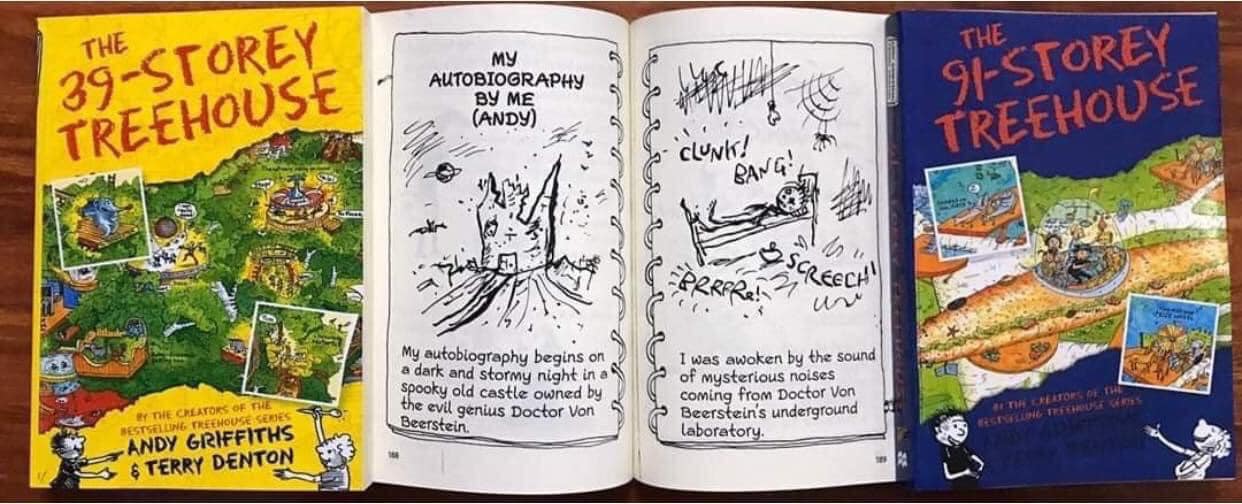 THE
39-STOREY
TREEHOUSE
BY THE CREATORS OF THE
BESTSELLING TREEHOUSE SERIES
ANDY GRIFFITHS
& TERRY DENTON
MY
AUTOBIOGRAPHY
BY ME
(ANDY)
My autobiography begins on
a dark and stormy night in a
spooky old castle owned by
the evil genius Doctor Von
Beerstein.
188
CLUNK!
BANG!
SCREECH!
BRRRRR!
I was awoken by the sound
of mysterious noises
coming from Doctor Von
Beerstein's underground
laboratory.
189
THE
91-STOREY
TREEHOUSE
BY THE CREATORS OF THE
BESTSELLING TREEHOUSE SERIES